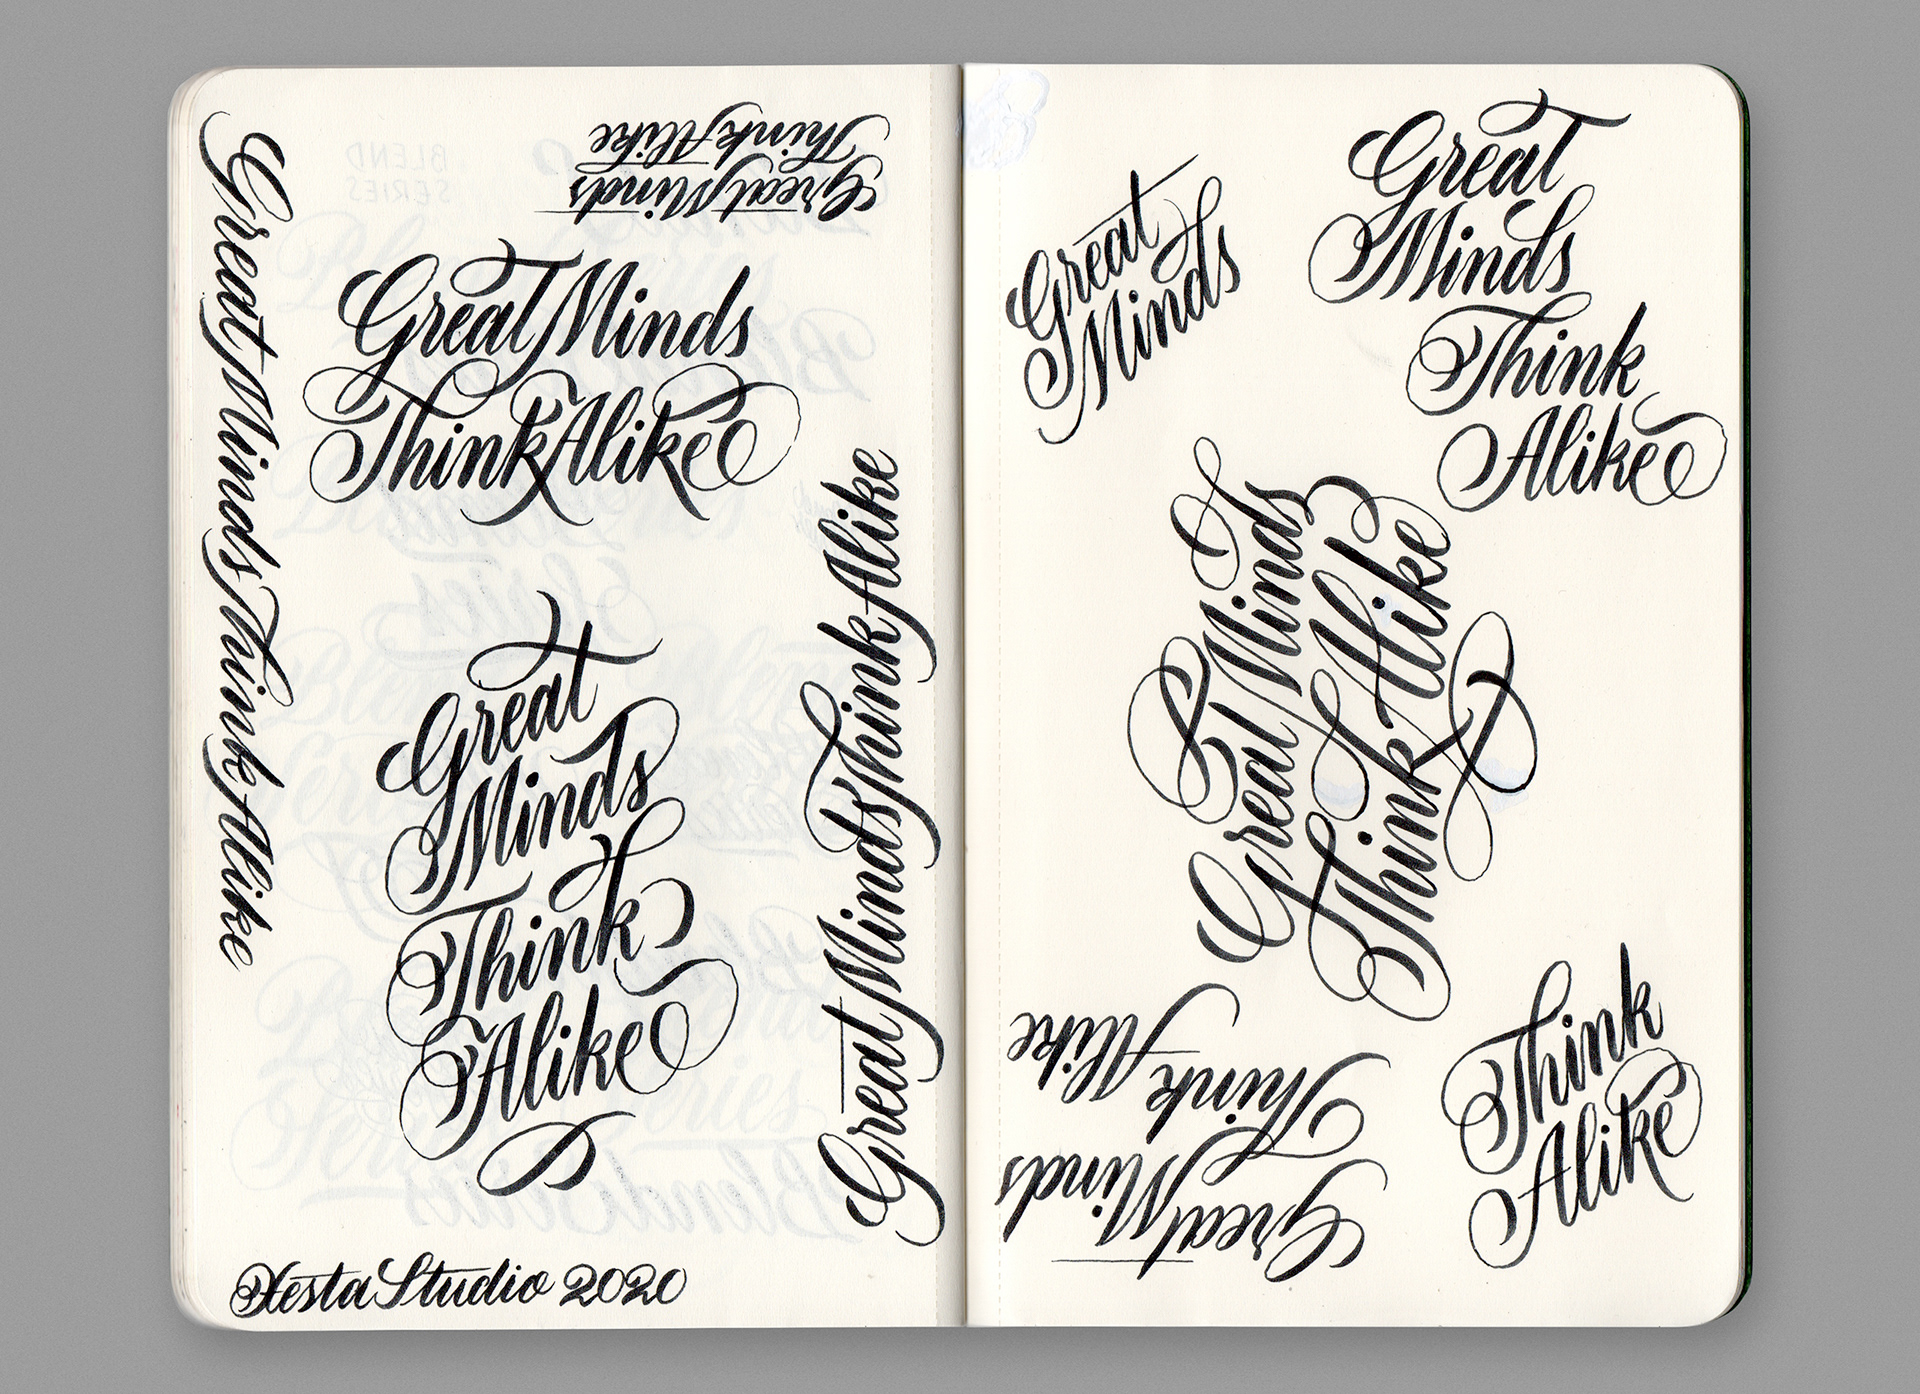 Great Minds Think Alike
Great Minds
Think Alike
Great Minds
Think Alike
Great
Minds
Think
Alike
Great Minds Think Alike
XestaStudio 2020
Great
Minds
Great
Minds
Think
Alike
Great Minds
Think Alike
Great Minds
Think Alike
Think
Alike
BLEND
SERIES